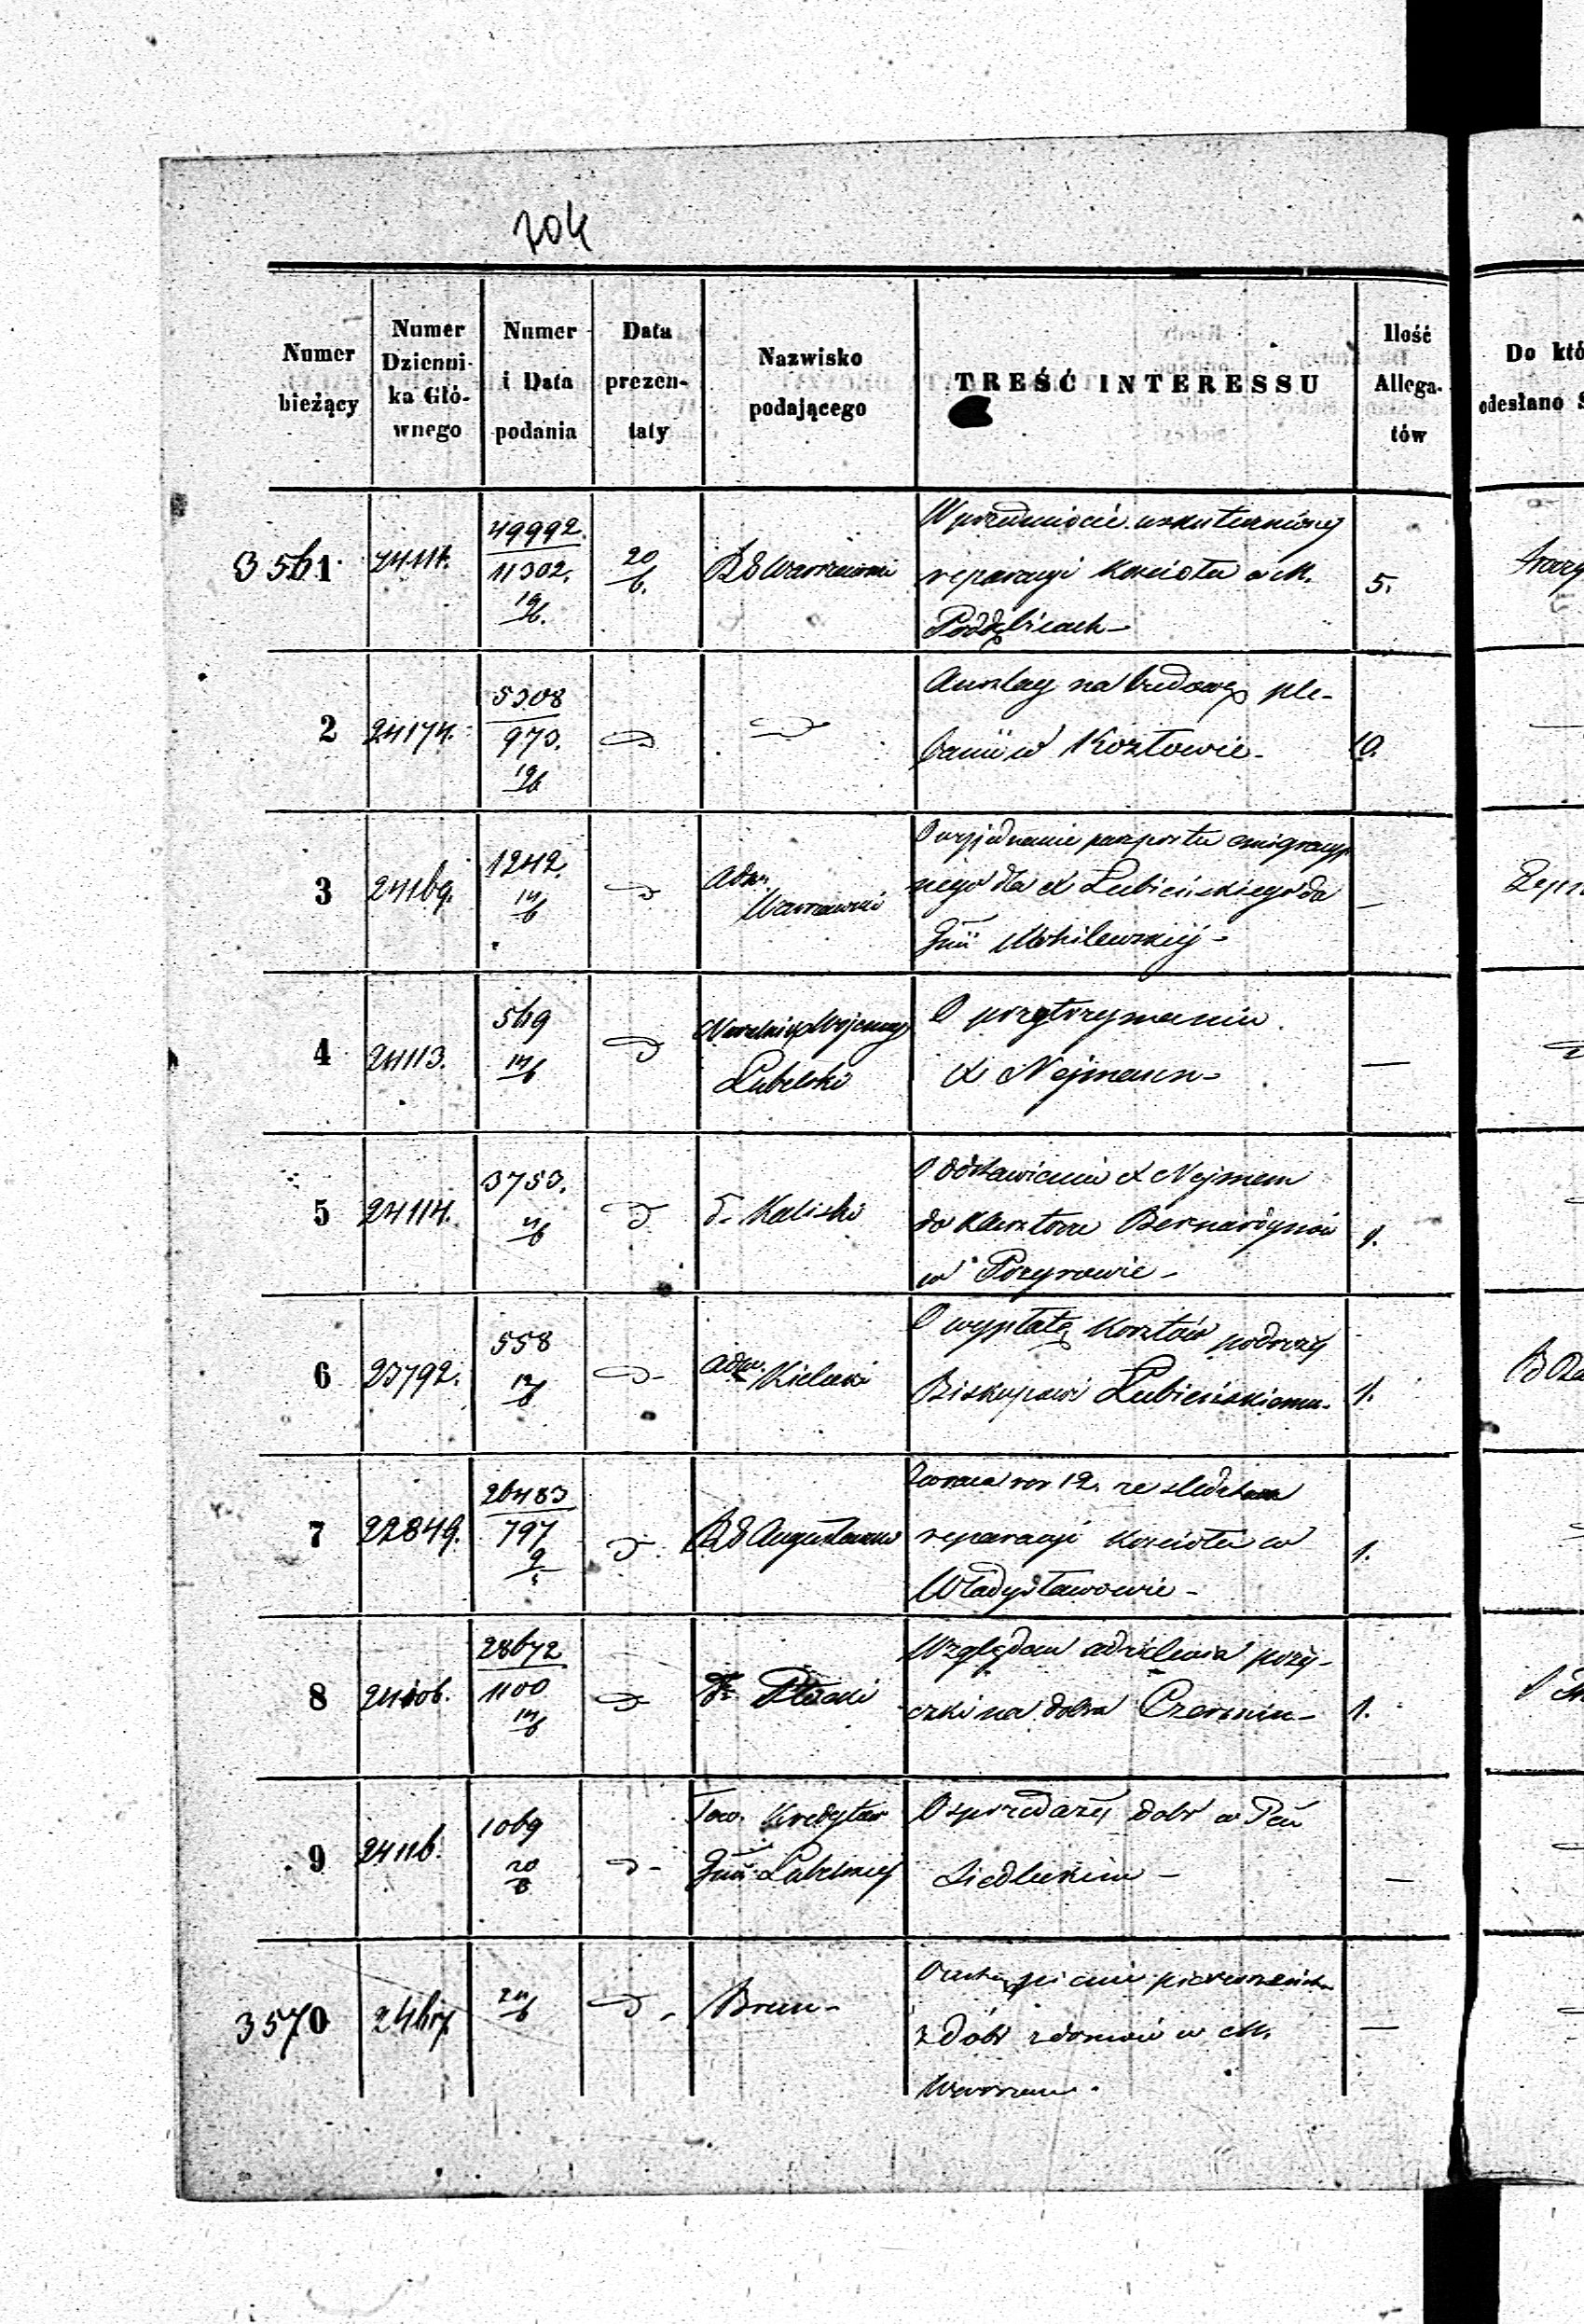 704
Numer bieżący
Numer Dzienni- ka Głó- wnego
Numer i Data podania
Data prezen- taty
Nazwisko podającego
TREŚĆ INTERESSU
Ilość Allega- tów
Do któ
odesłano S
3561
24111.
49992.
11302.
19/6.
20/6.
RG Warszawski
W przedmiocie uskutecznionej
reparacyi Kościoła w M.
Poddębicach -
5.
2
24174.
5308
973.
19/6
Anszlag na budowę ple-
banii w Kozłowie -
10.
3
24169.
1242.
14/6
Adm.
Warszawski
O wyjednanie paszportu emigracyj-
nego dla X Lubieńskiego do
Gnii Mohilewskiej -
—
4
24113.
569
14/6
Naczelnik Wojenny
Lubelski
O przytrzymaniu
X Nejman -
—
5
24114.
3753.
11/6
T. Kaliski
O dostawieniu X Nejman
do Klasztoru Bernardynów
w Przyrowie -
1.
6
23792.
558
12/6
Adm. Kielecki
O wypłatę Kosztów podroży
Biskupowi Lubieńskiemu.
1.
7
22849.
26483
797
9
RG Augustowski
reparacyi Kościoła w
Władysławowie -
1.
8
24106.
28672
1100
14/6
Płocki
Względem udzielenia poży-
czki na dobra Czermin -
1.
9
24116.
1069
20/6
Tow. Kredytowe
Gnii Lubelskiej
O sprzedaży dobr w Pcie
Siedleckim -
—
3570
24/6
Brun -
z dóbr i domów w M.
Warszawie.
—